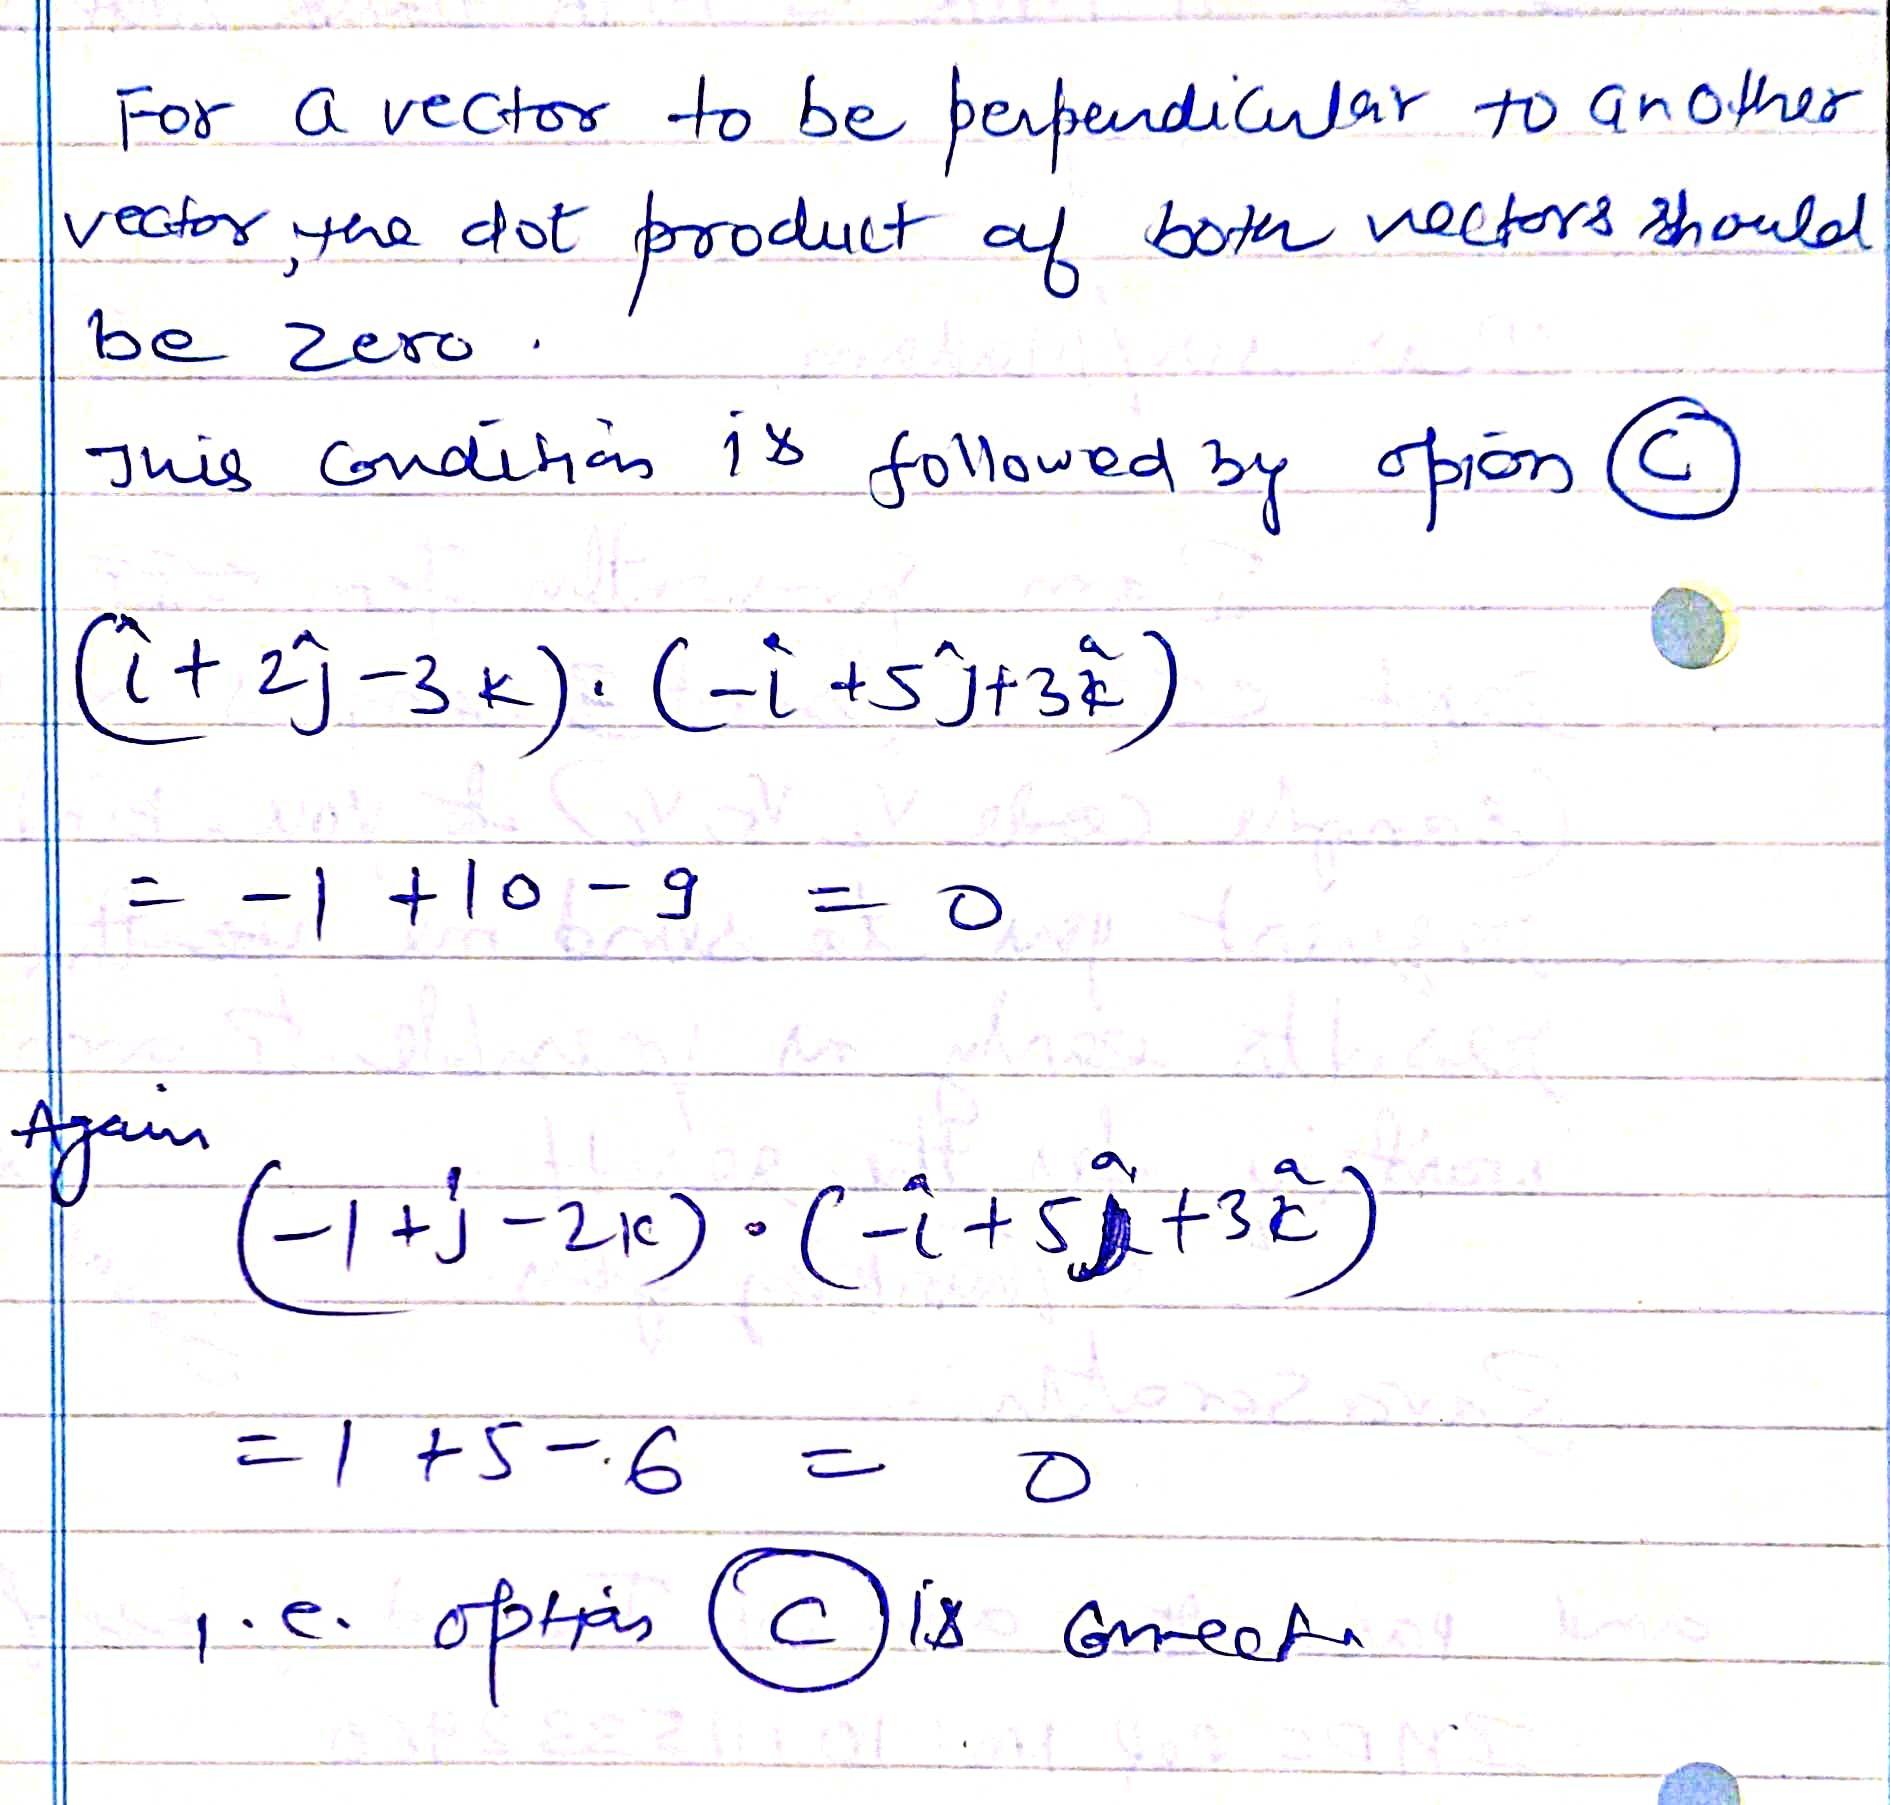 For a vector to be perpendicular to another
vector, the dot product of both vectors should
be zero.
This condition is followed by opion (C)
(î + 2ĵ - 3k) · (-î + 5ĵ + 3k̂)
= -1 + 10 - 9 = 0
Again
(-1 + j - 2k) · (-î + 5ĵ + 3k̂)
= 1 + 5 - 6 = 0
i.e. option (C) is correct